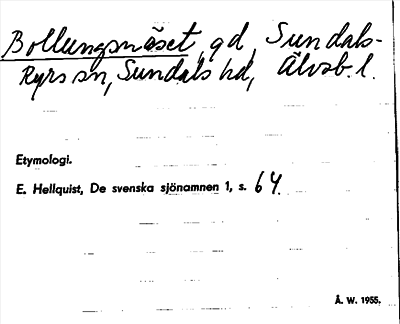 Bollungsnäset, gd, Sundals-
Ryrs sn, Sundals hd, Älvsb. l.
Etymologi.
E. Hellquist, De svenska sjönamnen 1, s. 64.
Å. W. 1955.